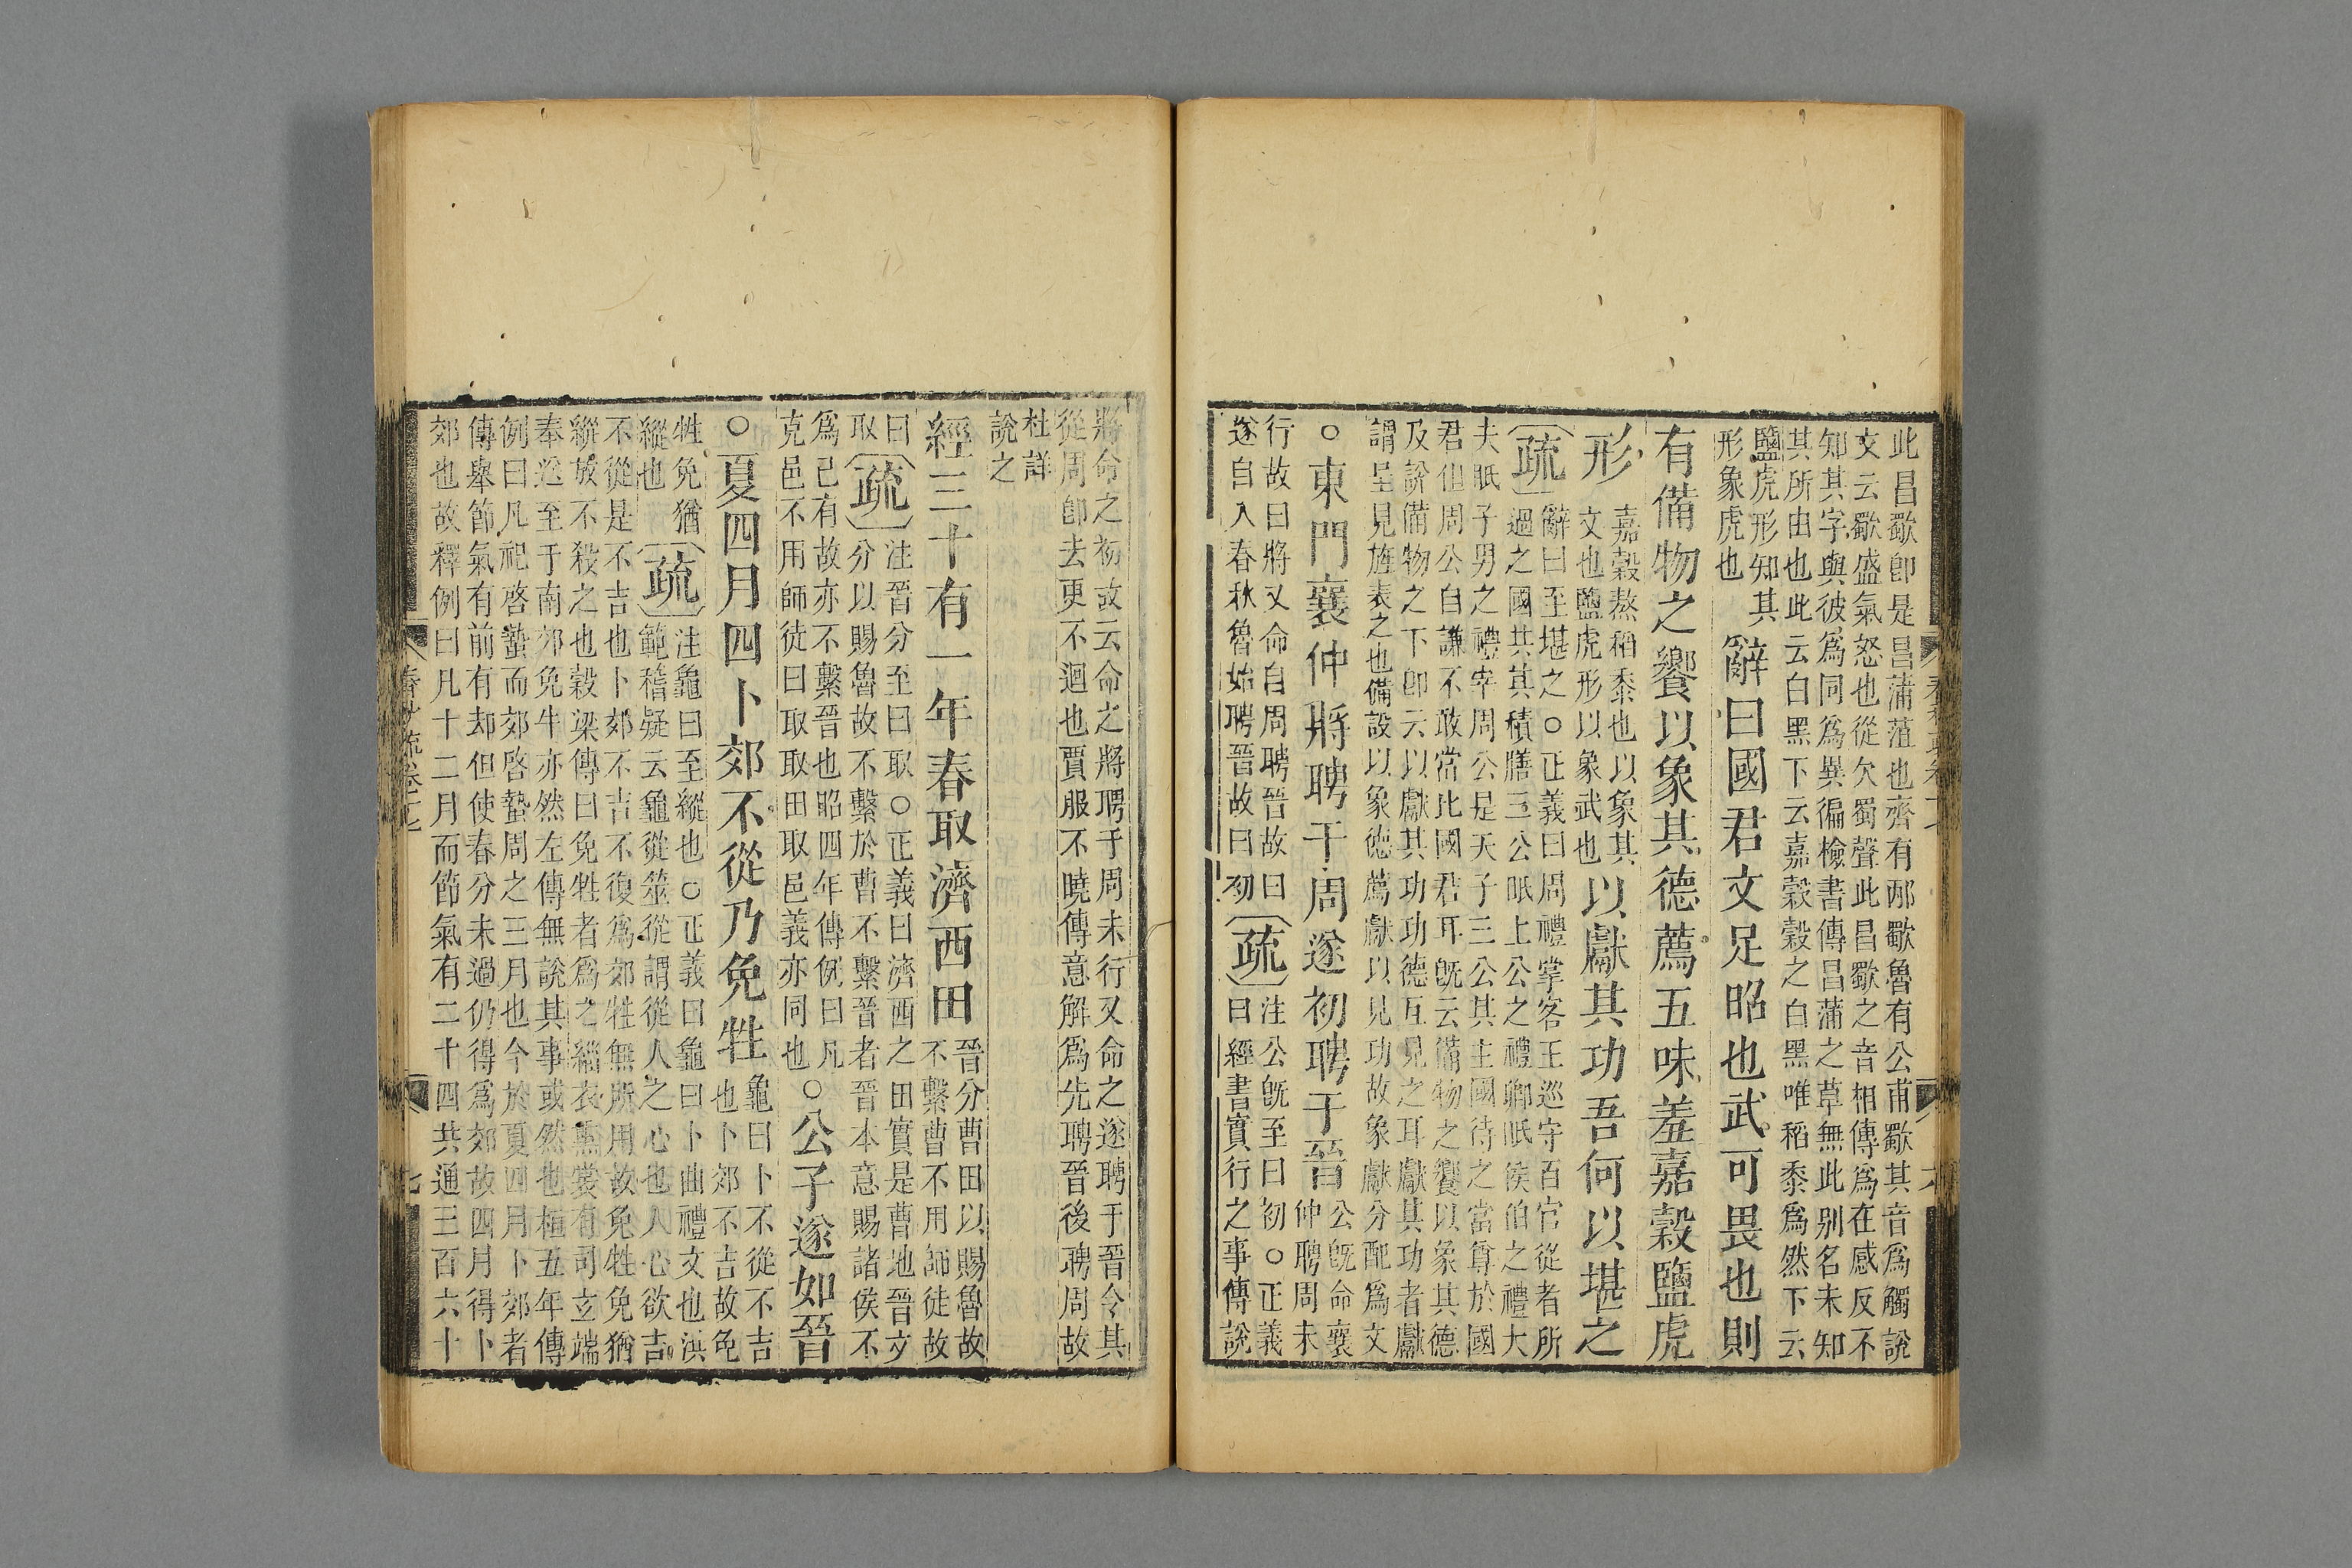 此昌歜卽是昌蒲葅也齊有邴歜魯有公甫歜其音爲觸說
文云歜盛氣怒也從欠蜀聲此昌歜之音相傳爲在感反不
知其字與彼爲同爲異徧檢書傳昌蒲之草無此别名未知
其所由也此云白黑下云嘉穀穀之白黑唯稻黍爲然下云
鹽虎形知其
形象虎也
辭曰國君文足昭也武可畏也則
有備物之饗以象其德薦五味羞嘉穀鹽虎
形
嘉穀熬稻黍也以象其
文也鹽虎形以象武也
以獻其功吾何以堪之
疏
辭曰至堪之○正義曰周禮掌客王巡守百官從者所
過之國共其積膳三公眂上公之禮卿眂侯伯之禮大
夫眂子男之禮宰周公是天子三公其主國待之當尊於國
君但周公自謙不敢當比國君耳旣云備物之饗以象其德
及說備物之下卽云以獻其功功德互見之耳獻其功者獻
謂呈見旌表之也備設以象德薦獻以見功故象獻分配爲文
○東門襄仲將聘于周遂初聘于晉
公旣命襄
仲聘周未
行故曰將又命自周聘晉故曰
遂自入春秋魯始聘晉故曰初
疏
注公旣至曰初○正義
曰經書實行之事傳說
將命之初故云命之將聘于周未行又命之遂聘于晉令其
從周卽去更不迴也賈服不曉傳意解爲先聘晉後聘周故
杜詳
說之
經三十有一年春取濟西田
晉分曹田以賜魯故
不繫曹不用師徒故
曰
取
疏
注晉分至曰取○正義曰濟西之田實是曹地晉文
分以賜魯故不繫於曹不繫晉者晉本意賜諸侯不
爲己有故亦不繫晉也昭四年傳例曰凡
克邑不用師徒曰取取田取邑義亦同也
○公子遂如晉
○夏四月四卜郊不從乃免牲
龜曰卜不從不吉
也卜郊不吉故免
牲免猶
縱也
疏
注龜曰至縱也○正義曰龜曰卜曲禮文也洪
範稽疑云龜從筮從謂從人之心也人心欲吉
不從是不吉也卜郊不吉不復爲郊牲無所用故免牲免猶
縱放不殺之也穀梁傳曰免牲者爲之緇衣熏裳有司玄端
奉送至于南郊免牛亦然左傳無說其事或然也桓五年傳
例曰凡祀啓蟄而郊啓蟄周之三月也今於夏四月卜郊者
傳舉節氣有前有却但使春分未過仍得爲郊故四月得卜
郊也故釋例曰凡十二月而節氣有二十四共通三百六十